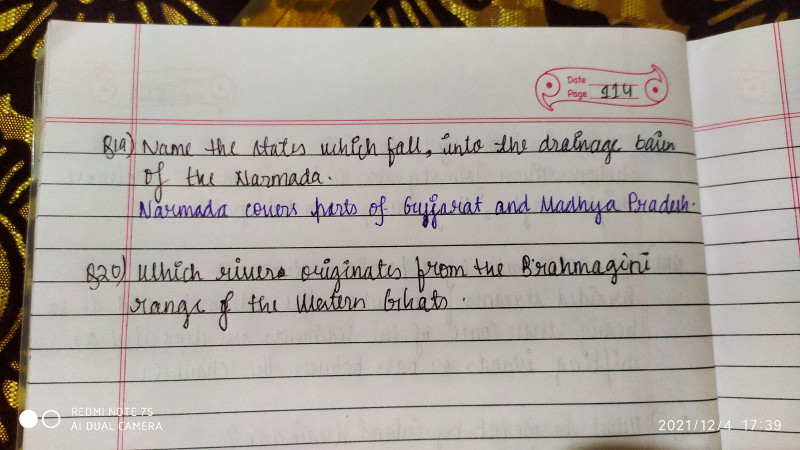 Date
Page 114
Q19) Name the states which fall, into the drainage basin
of the Narmada.
Narmada covers parts of Gujjarat and Madhya Pradesh.
Q20) Which rivers originates from the Brahmagini
range of the Western Ghats.
REDMI NOTE 7S
AI DUAL CAMERA
2021/12/4 17:39